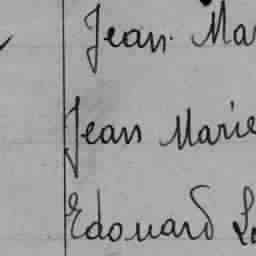 Jean. Ma
Jean Marie
Edouard L